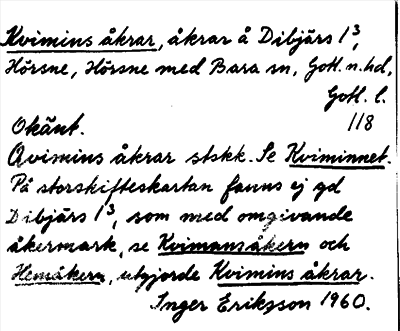 Kvimins åkrar, åkrar å Dibjärs 1³,
Hörsne, Hörsne med Bara sn, Gotl. n. hd,
Gotl. l.
Okänt. 118
Qvimins åkrar stskk. Se Kviminnet.
På storskifteskartan fanns ej gd
Dibjärs 1³, som med omgivande
åkermark, se Kvimansåkern och
Hemåkern, utgjorde Kvimins åkrar.
Inger Eriksson 1960.